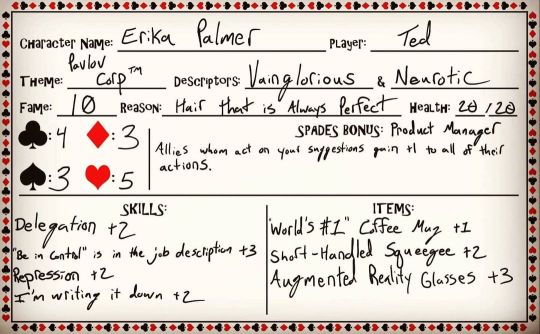 Character Name: Erika Palmer Player: Ted
Theme: Pavlov Corp™ Descriptors: Vainglorious & Neurotic
Fame: 10 Reason: Hair that is Always Perfect Health: 20/20
♣: 4 ♦: 3 SPADES BONUS: Product Manager
Allies whom act on your suggestions gain +1 to all of their
actions.
♠: 3 ♥: 5
SKILLS:
Delegation +2
"Be in Control" is in the job description +3
Repression +2
I'm writing it down +2
ITEMS:
"World's #1" Coffee Mug +1
Short-Handled Squeegee +2
Augmented Reality Glasses +3